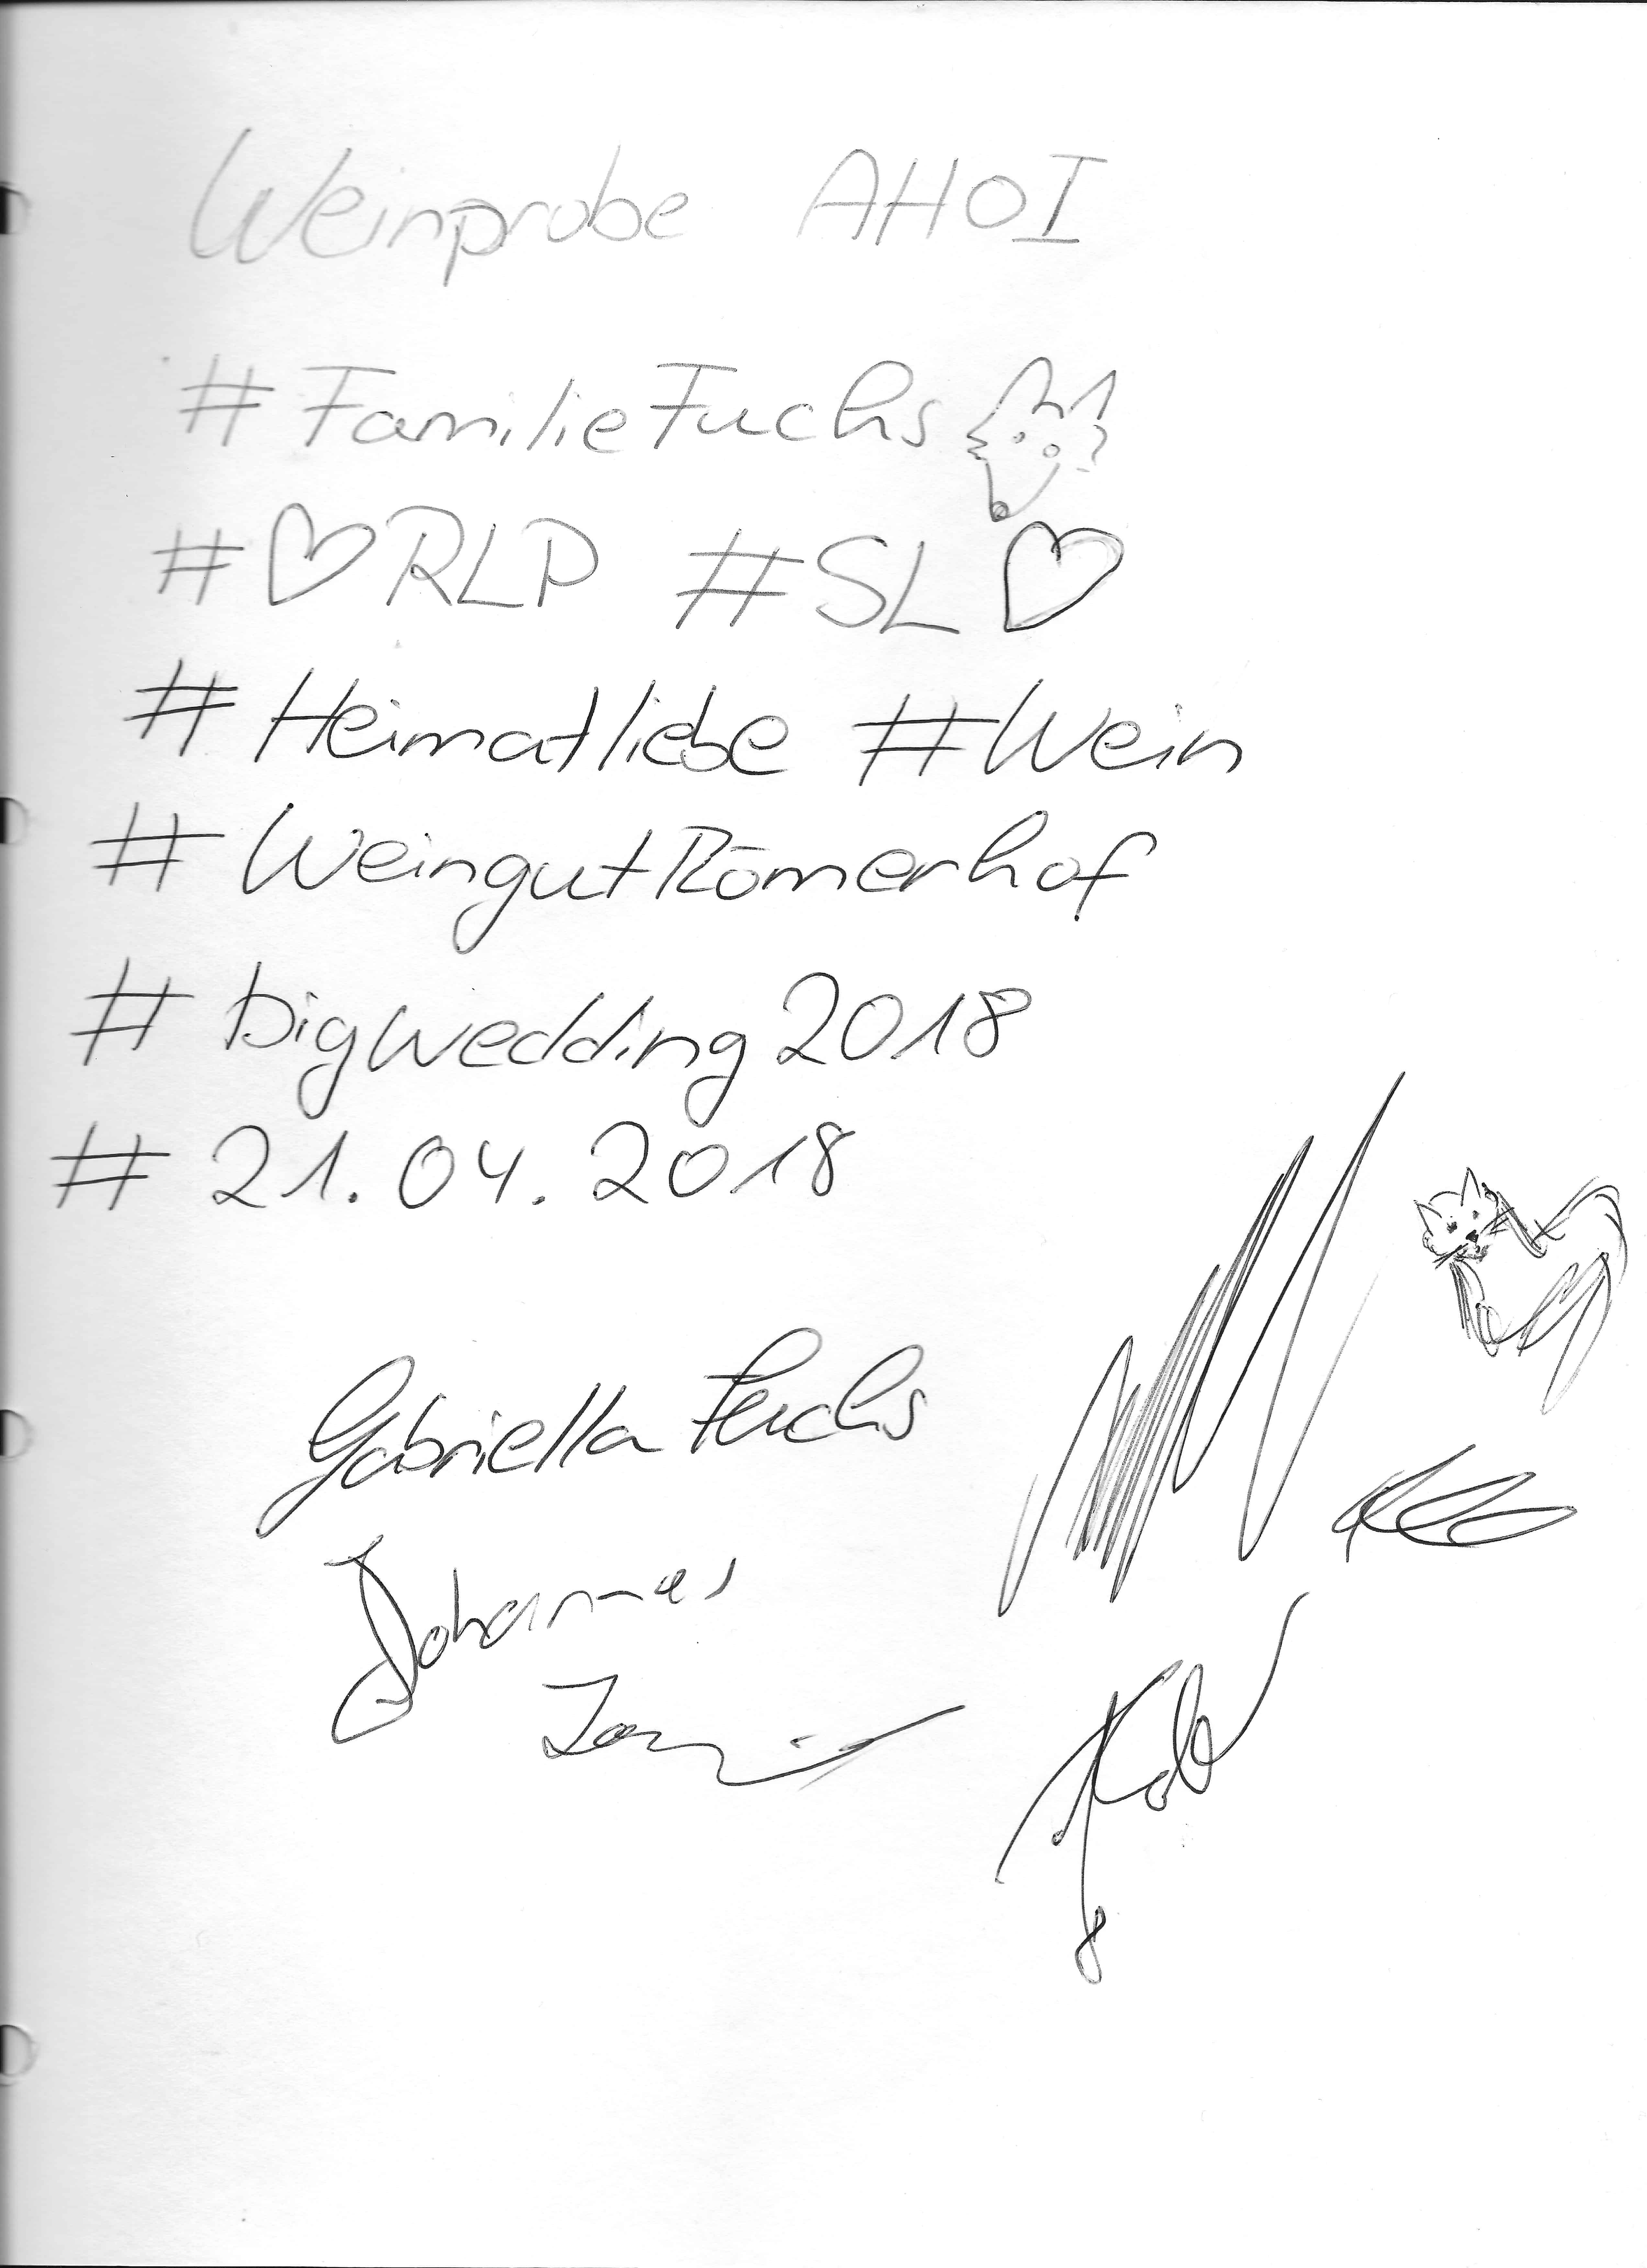 Weinprobe AHOI
#FamilieFuchs
#♡RLP #SL♡
#Heimatliebe #Wein
#WeingutRömerhof
#bigwedding2018
#21.04.2018
Gabriella Fuchs
Johannes